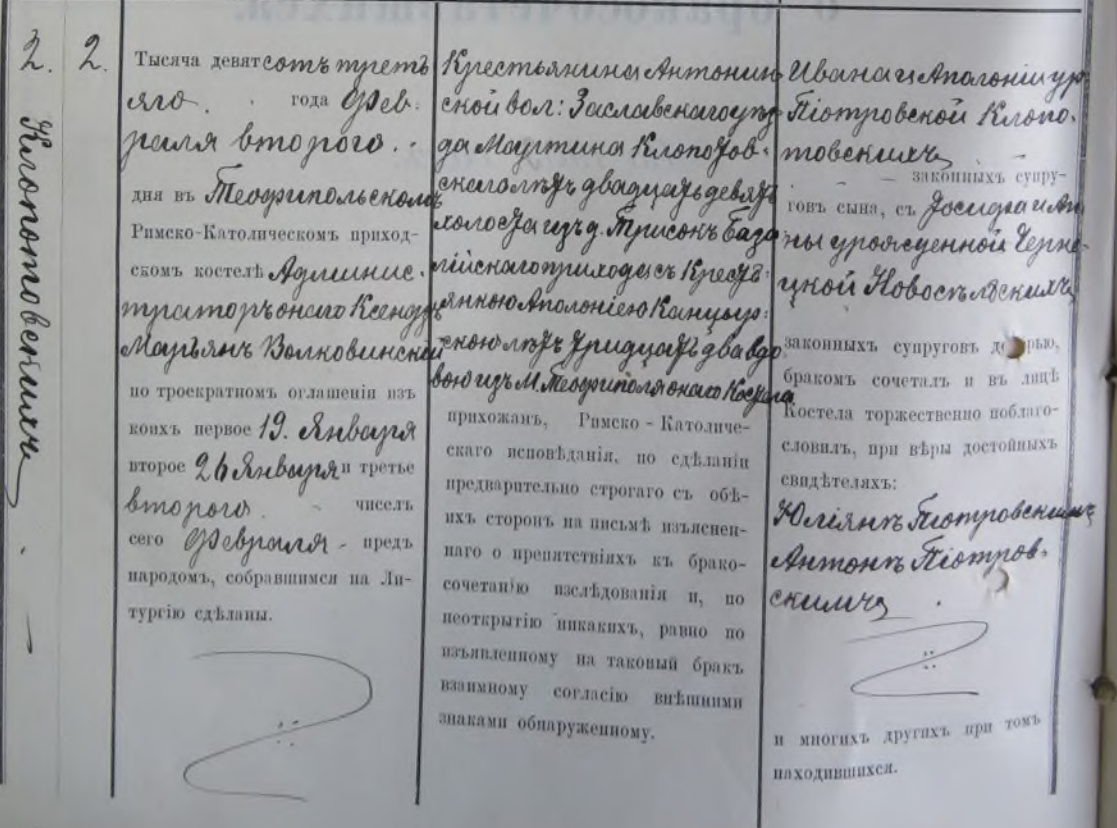 2.
Клопотовскихъ
2.
Тысяча девятсотъ трет
яго года Фев
раля второго
дня въ Теофипольскомъ
Римско-Католическомъ приход-
скомъ костелѣ Админис-
траторъ онаго Ксендзъ
Марьянъ Волковинский
по троекратном оглашенія изъ
коихъ первое 19. Января
второе 26 Января и третье
второго чиселъ
сего Февраля - предъ
народомъ, собравшимся на Ли-
тургію сдѣланы.
Крестьянина Антонин
ской вол: Заславского уѣз
да Мартина Клопотов-
скаго лѣтъ двадцать девять
холоста изъ д. Трисокъ База
лійскаго прихода съ Кресть-
янкою Аполоніею Канцыр-
скою лѣтъ тридцать два вдо
вою изъ М. Теофиполя онаго Костела
прихожанъ, Римско-Католиче-
скаго исповѣданія, по сдѣланіи
предварительно строгаго съ обѣ-
ихъ сторонъ на письмѣ изъяснен-
наго о препятствіяхъ къ брако-
сочетанію изслѣдованія и, по
неоткрытію никакихъ, равно по
изъявленному на таковый бракъ
взаимному согласію внѣшними
знаками обнаруженному.
Ивана и Аполоніи ур
Піотровской Клопо-
товскихъ
законныхъ супру-
говъ сына, съ Іосифа и Ан
ны урожденной Черне
цкой Новосѣльскихъ
законныхъ супруговъ дочерью,
бракомъ сочеталъ и въ лицѣ
Костела торжественно поблаго-
словилъ, при вѣры достойныхъ
свидѣтеляхъ:
Юліянъ Піотровскимъ
Антонъ Піотров-
скимъ
и многихъ другихъ при томъ
находившихся.